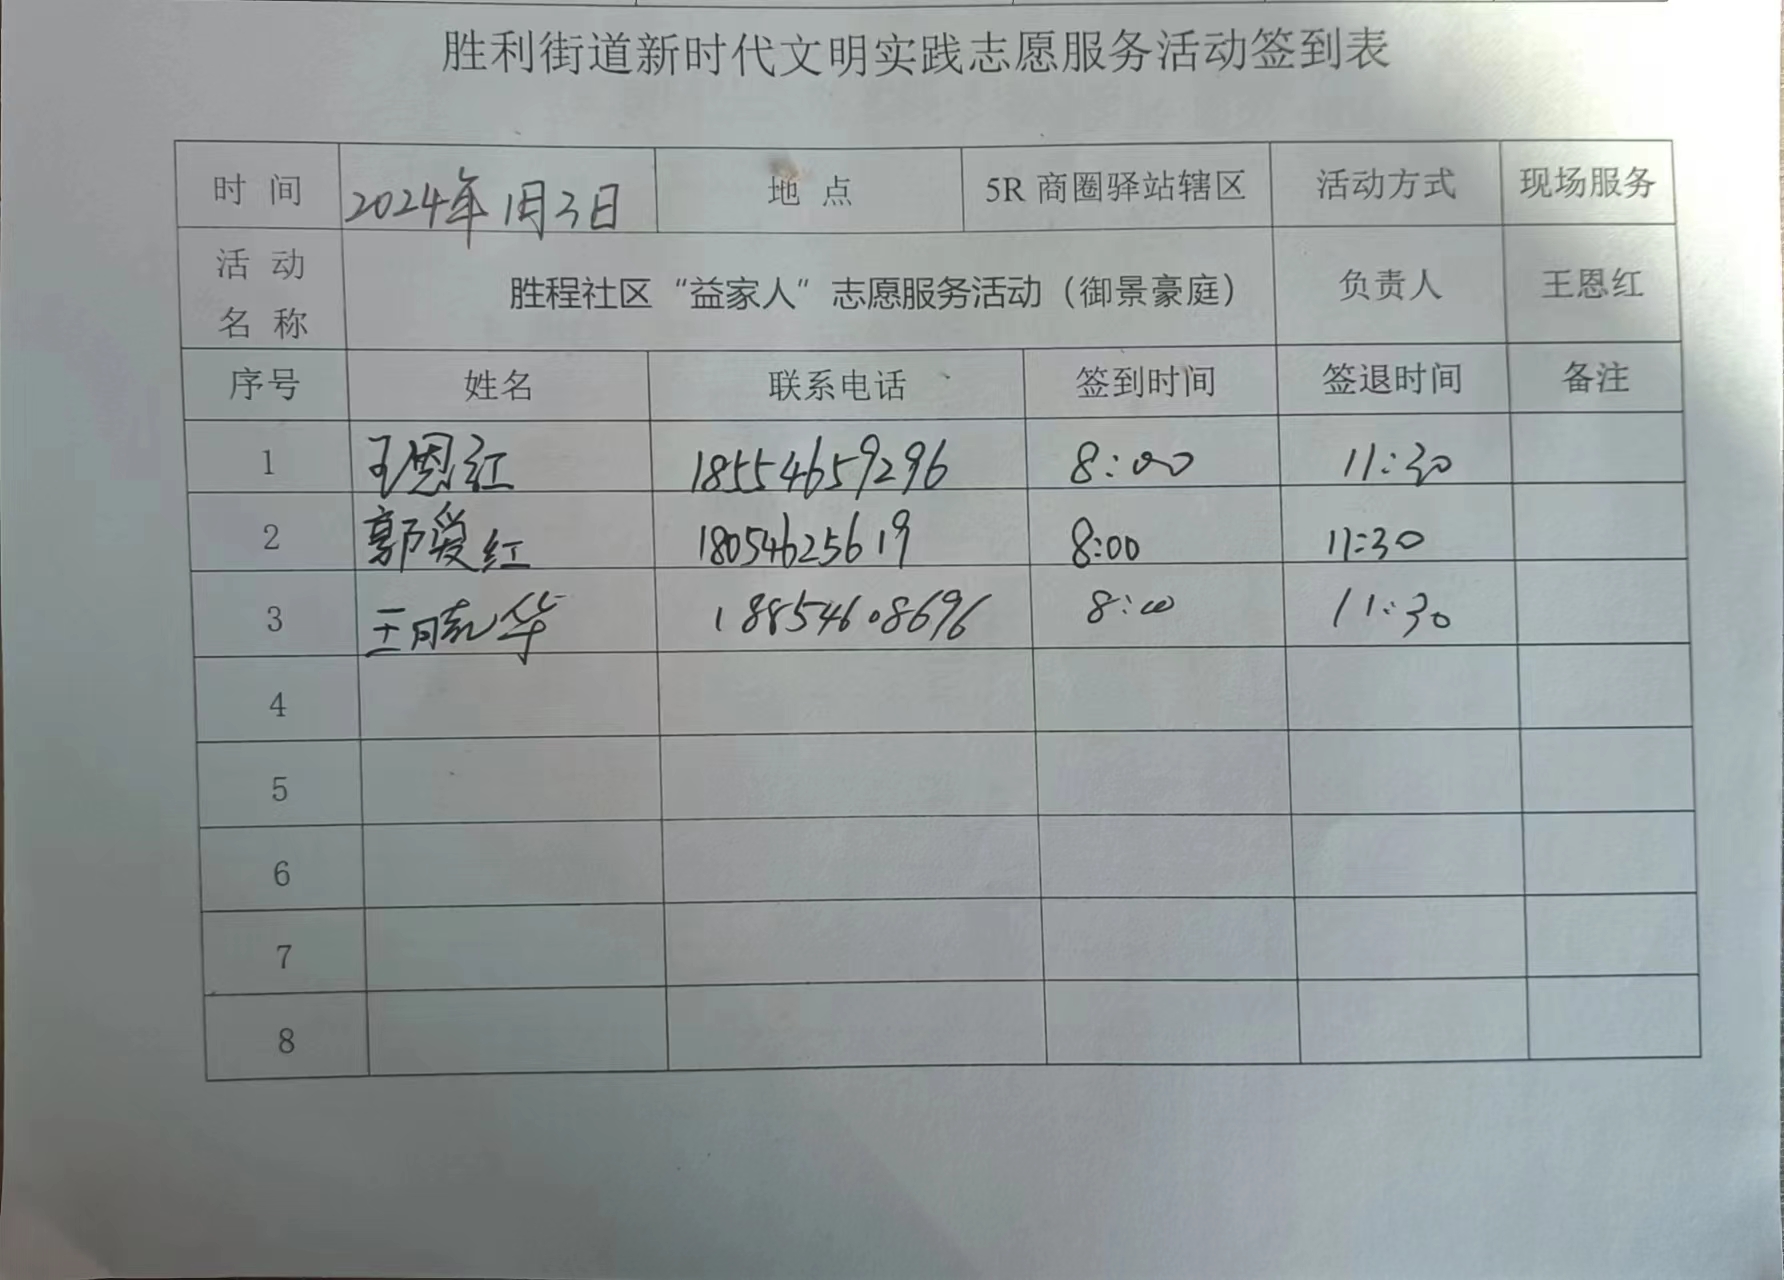 胜利街道新时代文明实践志愿服务活动签到表
时 间 2024年1月3日 地 点 5R 商圈驿站辖区 活动方式 现场服务
活 动
名 称 胜程社区“益家人”志愿服务活动（御景豪庭） 负责人 王恩红
序号 姓名 联系电话 签到时间 签退时间 备注
1 王恩红 18554659296 8:00 11:30
2 郭爱红 18054625619 8:00 11:30
3 18854608696 8:00 11:30
4
5
6
7
8